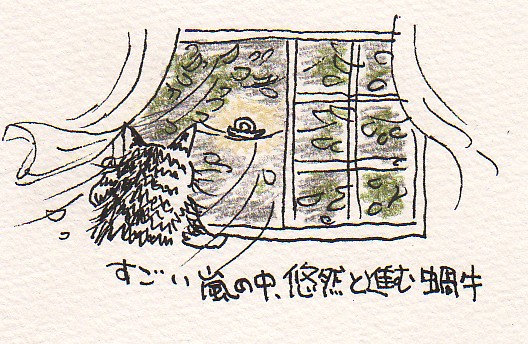 すごい嵐の中、悠然と進む蝸牛